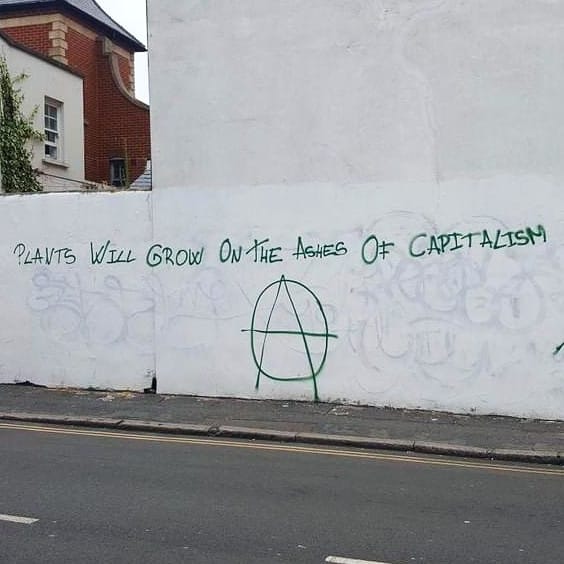 PLANTS WILL GROW ON THE ASHES OF CAPITALISM
A